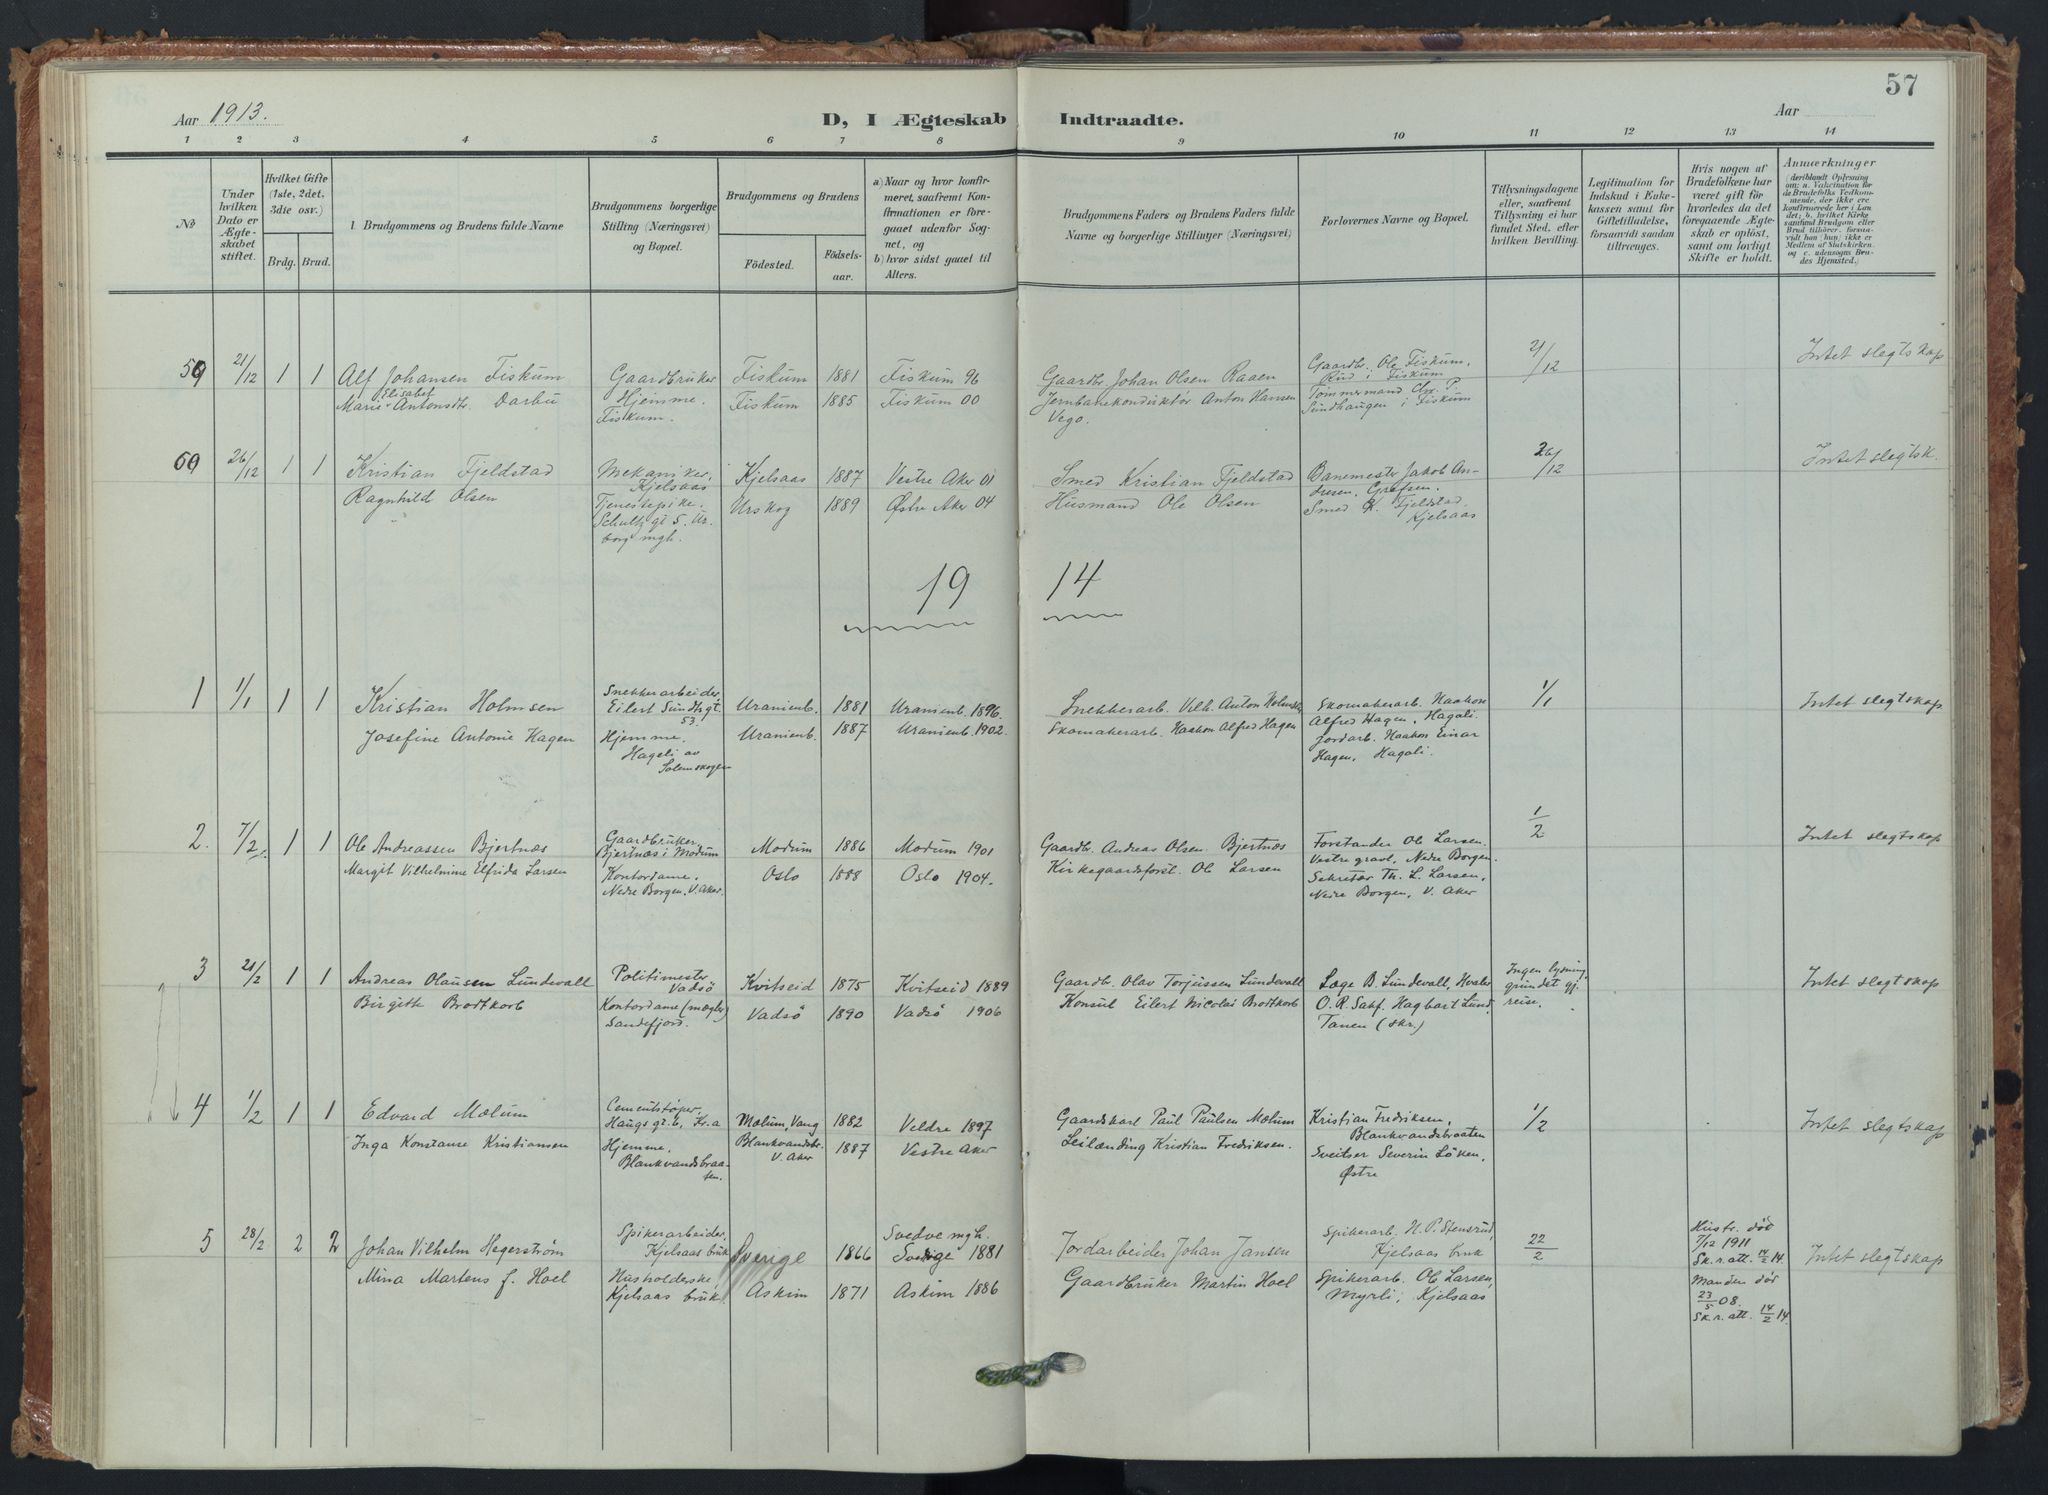 57
Aar 1913.
D, I Ægteskab Indtraadte.
Aar
1 2 3 4 5 6 7 8 9 10 11 12 13 14
No
Under hvilken Dato er Ægteskabet stiftet.
Hvilket Gifte (1ste, 2det, 3die osv.)
Brdg. Brud.
Brudgommens og Brudens fulde Navne
Brudgommens borgerlige Stilling (Næringsvei) og Bopæl.
Brudgommens og Brudens
Fødested. Fødselsaar.
a) Naar og hvor konfirmeret, saafremt Konfirmationen er foregaaet udenfor Sognet, og
b) hvor sidst gaaet til Alters.
Brudgommens Faders og Brudens Faders fulde Navne og borgerlige Stillinger (Næringsvei)
Forlovernes Navne og Bopæl.
Tillysningsdagene eller, saafremt Tillysning ei har fundet Sted, efter hvilken Bevilling.
Legitimation for Indskud i Enkekassen samt for Giftetilladelse, forsaavidt saadan tiltrænges.
Hvis nogen af Brudefolkene har været gift før hvorledes da det foregaaende Ægteskab er opløst, samt om lovligt Skifte er holdt.
Anmærkninger (deriblandt Oplysning om: a. Vakcination for de Brudefolks Vedkommende, der ikke ere konfirmerede her i Landet; b. hvilket Kirkesamfund Brudgom eller Brud tilhører, forsaavidt han (hun) ikke er Medlem af Statskirken, og c. udensogns Brudes Hjemsted.)
59 21/12 1 1 Alf Johansen Fiskum Gaardbruker Fiskum 1881 Fiskum 96 Gaardbr. Johan Olsen Raaen Gaardbr. Ole Fiskum, Rud i Fiskum 21/12 Intet slegtskap
Marie Elisabet Antonsdtr. Darbu Hjemme. Fiskum. Fiskum 1885 Fiskum 00 Jernbanekonduktør Anton Hansen Vego. Tømmermand Chr. P. Sundhaugen i Fiskum
60 26/12 1 1 Kristian Fjeldstad Mekaniker, Kjelsaas Kjelsaas 1887 Vestre Aker 01 Smed Kristian Fjeldstad Banemester Jakob Andresen, Grefsen. 26/12 Intet slegtsk.
Ragnhild Olsen Tjenestepike, Schultz gt 5. Urskog 1889 Østre Aker 04 Husmand Ole Olsen Smed K. Fjeldstad, Kjelsaas
19 14
1 1/1 1 1 Kristian Holmsen Snekkerarbeider, Eilert Sundts gt. 53. Uranienb. 1881 Uranienb. 1896. Snekkerarb. Vilh. Anton Holmsen Skomakerarb. Haakon Alfred Hagen, Hagali. 1/1 Intet slegtskap
Josefine Antonie Hagen Hjemme. Hagali av Solemskogen Uranienb. 1887 Uranienb. 1902. Skomakerarb. Haakon Alfred Hagen Jordarb. Haakon Einar Hagen, Hagali.
2. 7/2 1 1 Ole Andreassen Bjertnæs Gaardbruker, Bjertnæs i Modum Modum 1886 Modum 1901 Gaardbr. Andreas Olsen Bjertnæs Forstander Ole Larsen. Vestre gravl, Nedre Borgen. 1/2 Intet slegtskap
Margit Vilhelmine Elfrida Larsen Kontordame. Nedre Borgen, V. Aker. Oslo 1888 Oslo 1904. Kirkegaardsforst. Ole Larsen Sekretær Th. L. Larsen, Nedre Borgen, V. Aker
3 21/2 1 1 Andreas Olausen Lundevall Politimester Vadsö Kvitseid 1875 Kvitseid 1889 Gaardb. Olav Torjussen Lundevall Læge B. Lundevall, Hvaler Ingen lysning grundet gj. reise. Intet slegtskap
Birgithe Brodtkorb Kontordame (mægler) Sandefjord. Vadsö 1890 Vadsö 1906 Konsul Eilert Nicolai Brodtkorb O. R. Sakf. Hagbart Lund, Tanen (skr.)
4 1/2 1 1 Edvard Mælum Cementstøper, Haugs gt. 6, Kr.a Mælum, Vang 1882 Veldre 1897 Gaardskarl Paul Paulsen Mælum Kristian Fredriksen, Blankvandsbraaten 1/2 Intet slegtskap
Inga Konstanse Kristiansen Hjemme, Blankvandsbraaten. Blankvandsbr. V. Aker 1887 Vestre Aker Leilænding Kristian Fredriksen. Sveitser Severin Löken, Østre
5 28/2 2 2 Johan Vilhelm Hegerström Spikerarbeider, Kjelsaas bruk Sverige 1866 Svedve mgh. Sverige 1881 Jordarbeider Johan Jansen Spikerarb. H. P. Stensrud, Kjelsaas bruk 22/2 Hustr. død 7/12 1911 Sk. r. att. 14/2 14. Intet slegtskap
Mina Martens f. Hoel Husholderske, Kjelsaas bruk Askim 1871 Askim 1886 Gaardbruker Martin Hoel Spikerarb. Ole Larsen, Myrli, Kjelsaas Manden død 23/5 08. Sk. r. att. 14/2 14.